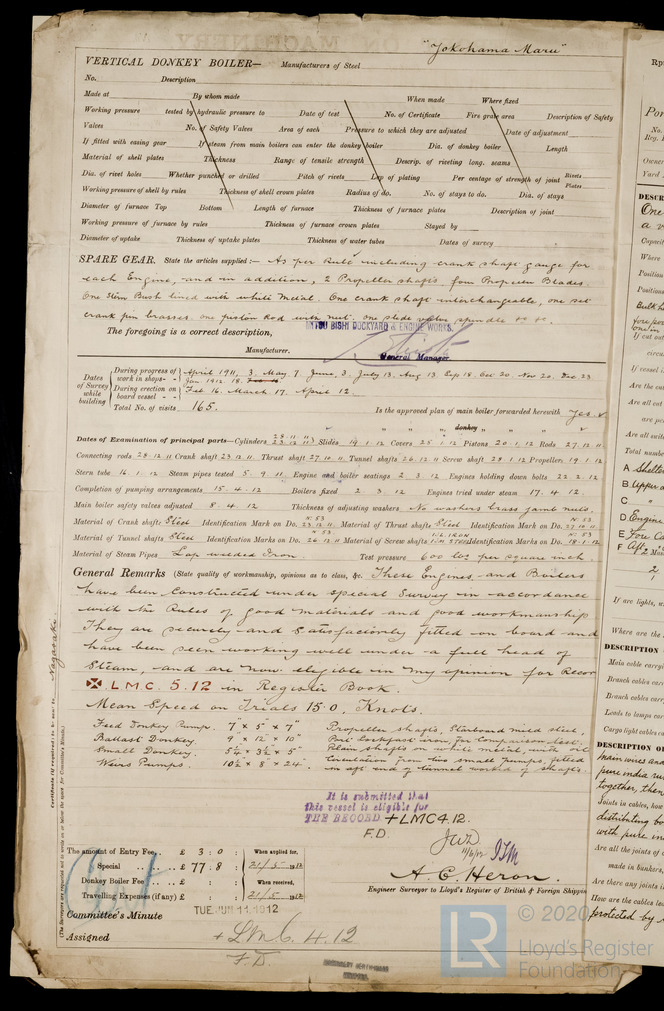 "Yokohama Maru"
VERTICAL DONKEY BOILER— Manufacturers of Steel
No. Description
Made at By whom made When made Where fixed
Working pressure tested by hydraulic pressure to Date of test No. of Certificate Fire grate area Description of Safety
Valves No. of Safety Valves Area of each Pressure to which they are adjusted Date of adjustment
If fitted with easing gear If steam from main boilers can enter the donkey boiler Dia. of donkey boiler Length
Material of shell plates Thickness Range of tensile strength Descrip. of riveting long. seams
Dia. of rivet holes Whether punched or drilled Pitch of rivets Lap of plating Per centage of strength of joint Rivets Plates
Working pressure of shell by rules Thickness of shell crown plates Radius of do. No. of stays to do. Dia. of stays
Diameter of furnace Top Bottom Length of furnace Thickness of furnace plates Description of joint
Working pressure of furnace by rules Thickness of furnace crown plates Stayed by
Diameter of uptake Thickness of uptake plates Thickness of water tubes Dates of survey
SPARE GEAR. State the articles supplied:— As per Rule including crank shaft gauge for
each Engine, and in addition, 2 Propeller shafts four Propeller Blades
One Stern Bush lined with white metal. One crank shaft interchangeable, one set
crank pin brasses. one piston Rod with nut. one slide valve spindle &c &c.
The foregoing is a correct description,
MITSU BISHI DOCKYARD & ENGINE WORKS.
Manufacturer. General Manager.
Dates of Survey while building
During progress of work in shops- - April 1911, 3. May, 7. June, 3. July 13, Aug 13 Sep 18. Oct 20. Nov 20. Dec 23
Jan 1912 18.
During erection on board vessel - - Feb 16. March 17. April 12
Total No. of visits 165.
Is the approved plan of main boiler forwarded herewith Yes
" " " donkey " " "
Dates of Examination of principal parts—Cylinders 28.11.11 23.12.11 Slides 19.1.12 Covers 25.1.12 Pistons 20.1.12 Rods 27.12.11
Connecting rods 28.12.11 Crank shaft 23.12.11. Thrust shaft 27.12.11. Tunnel shafts 26.12.11 Screw shaft 28.1.12 Propeller 19.1.12
Stern tube 16.1.12 Steam pipes tested 5.9.11. Engine and boiler seatings 2.3.12 Engines holding down bolts 22.2.12
Completion of pumping arrangements 15.4.12 Boilers fixed 2.3.12 Engines tried under steam 17.4.12.
Main boiler safety valves adjusted 8.4.12 Thickness of adjusting washers No washers brass jamb nuts.
Material of Crank shafts Steel Identification Mark on Do. N.53 23.12.11 Material of Thrust shafts Steel Identification Mark on Do. N.53 27.12.11
Material of Tunnel shafts Steel Identification Mark on Do. N.53 26.12.11 Material of Screw shafts Identification Marks on Do. N.53
Material of Steam Pipes Lap welded Iron. Test pressure 600 lbs per square inch
General Remarks (State quality of workmanship, opinions as to class, &c. These Engines and Boilers
have been constructed under special Survey in accordance
with the Rules of good materials and good workmanship
They are securely and satisfactorily fitted on board and
have been seen working well under a full head of
Steam, and are now eligible in my opinion for Recor
L.M.C. 5.12 in Register Book.
Mean Speed on Trials 15.0. Knots.
Feed Donkey Pump. 7" × 5" × 7" Propeller shafts, Starboard mild steel,
Ballast Donkey 9" × 12" × 10" Port Lockpace iron for Comparison test.
Small Donkey. 5¼ × 3½ × 5" Plain shafts on white metal, with oil
Weirs Pumps. 10½ × 8" × 24" Circulation from two small pumps, fitted
in aft end of tunnel worked by shafts.
It is submitted that
this vessel is eligible for
THE RECORD. + LMC 4.12.
F.D.
The amount of Entry Fee.. £ 3 : 0 : When applied for,
Special .. .. £ 77 : 8 : 21/5/1912
Donkey Boiler Fee .. .. £ : : When received,
Travelling Expenses (if any) £ : : 1912
A. C. Heron.
Engineer Surveyor to Lloyd's Register of British & Foreign Shippin
Committee's Minute TUE JUN 11 1912
Assigned + LMC. 4.12
F.D
Certificate (if required) to be sent to Nagasaki
(The Surveyors are requested not to write on or below the space for Committee's Minute.)
© 2020
LR
Lloyd's Register
Foundation